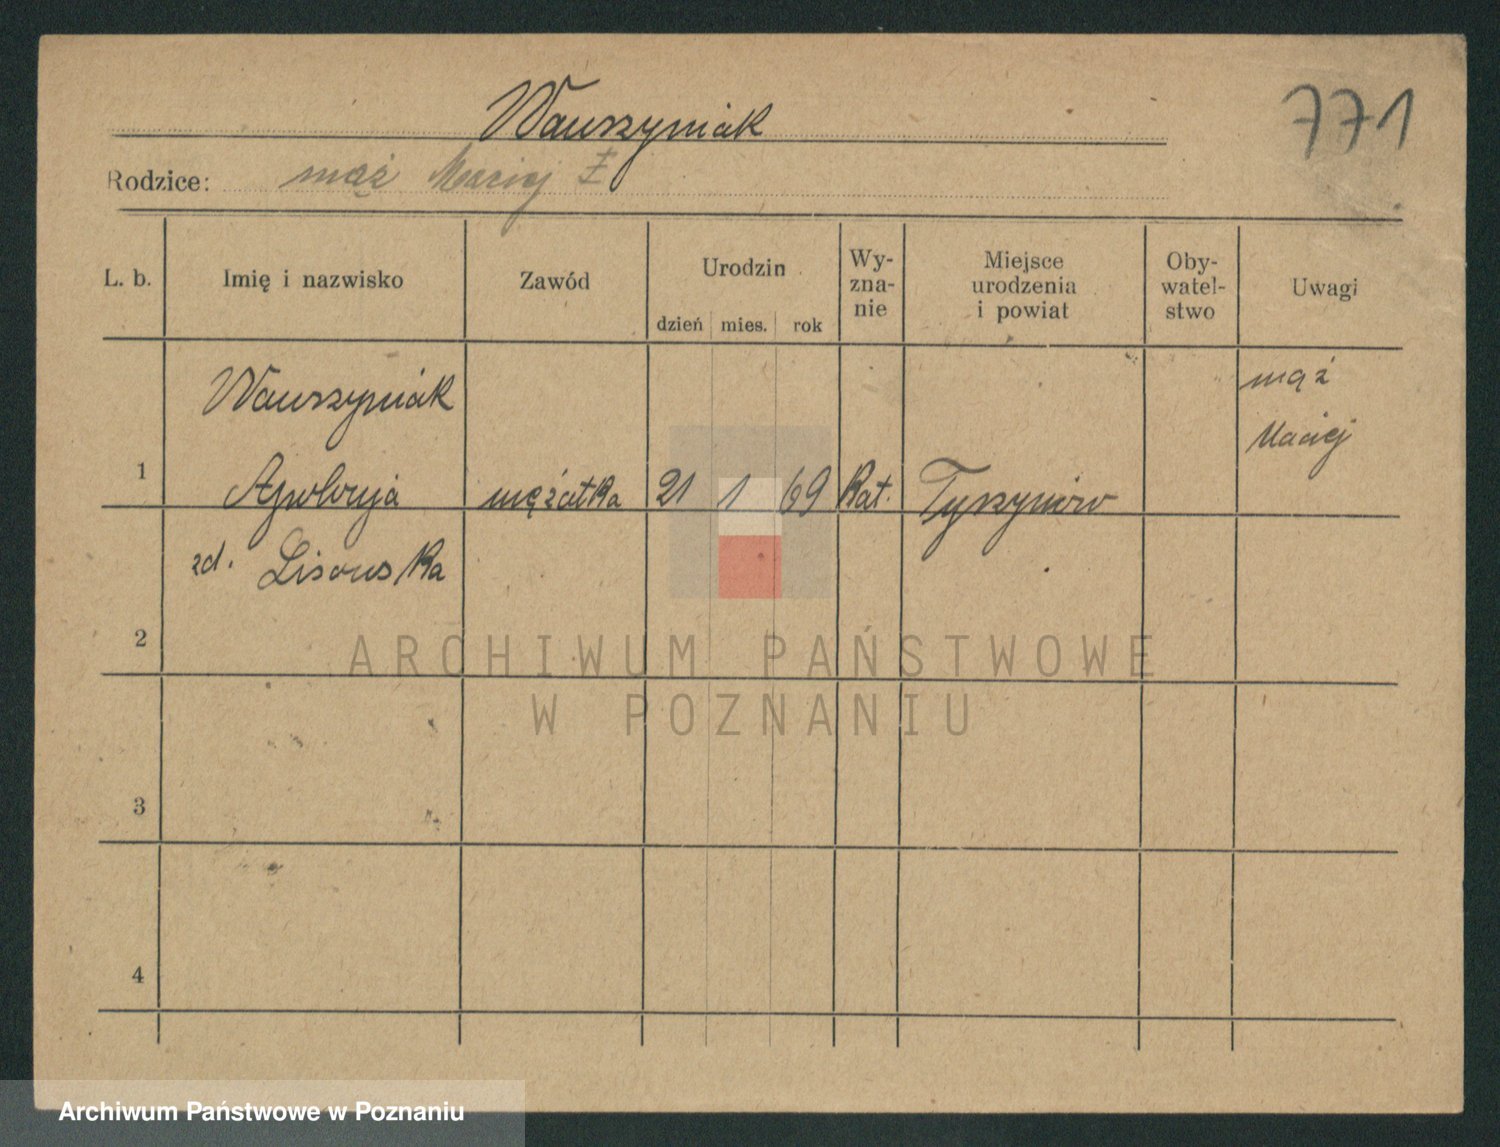 Wawrzyniak
771
Rodzice: mąż Maciej
L. b.
Imię i nazwisko
Zawód
Urodzin
dzień mies. rok
Wy-
zna-
nie
Miejsce
urodzenia
i powiat
Oby-
watel-
stwo
Uwagi
Wawrzyniak
mąż
Maciej
1 Apolonja mężatka 21 1 69 Kat.
zd. Lisowska
2
3
4
ARCHIWUM PAŃSTWOWE
W POZNANIU
Archiwum Państwowe w Poznaniu